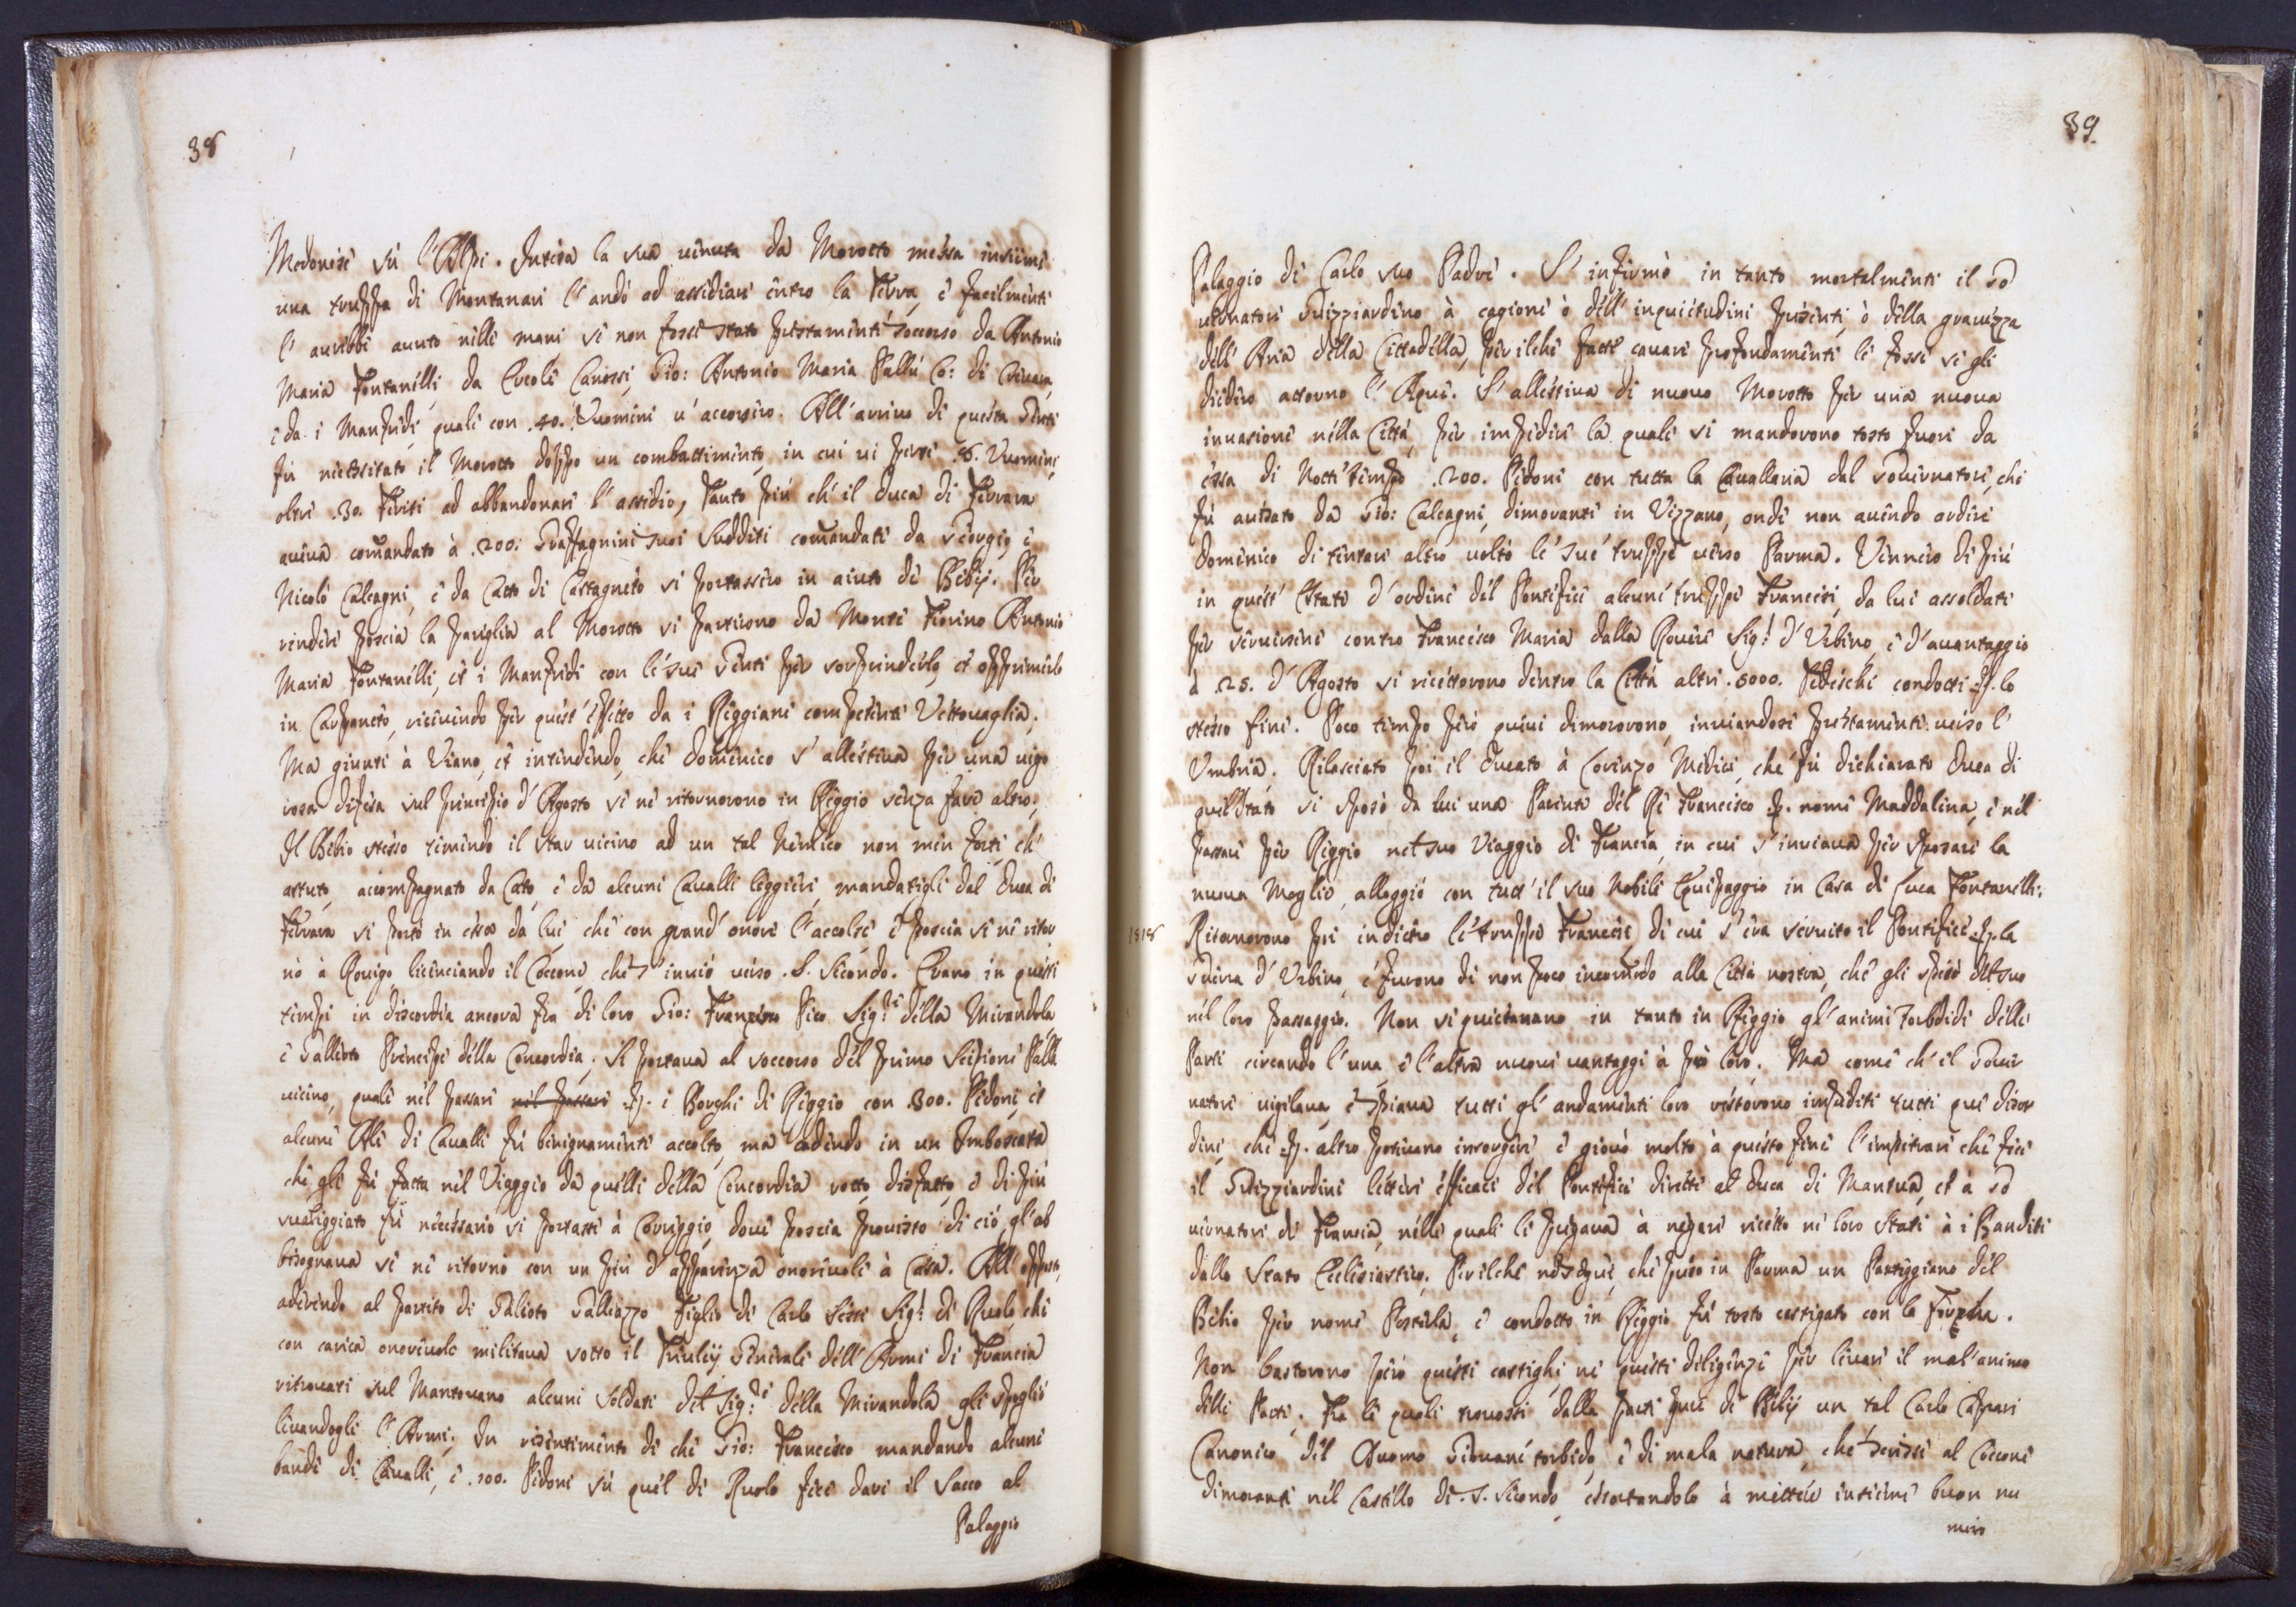 38
Modonesi sù l'Alpi. Intesa la sua uenuta da Morotto messa insieme
una truppa di Montanari l'andò ad assediare entro la Terra, e facilmente
l'aurebbe auuto nelle mani se non fosse stato prestamente soccorso da Antonio
Maria Fontanelli, da Ercole Canossi, Gio: Antonio Maria Pallù Co: di
e da i Manfredi, quali con .40. Uuomini u'accorsero. All'arriuo di questa Gente
fù necessitato il Morotto doppo un combattimento, in cui ui perse .8. Vuomini,
oltre .30. Feriti ad abbandonare l'assedio, Tanto più ch'il Duca di Ferrara
aueua comandato à .200. Graffagnini suoi Sudditi comandati da Giorgio, e
Nicolò Calcagni, e da Cato di Castagneto si portassero in aiuto de Bebij. Per
rendere poscia la pariglia al Morotto si partirono da Monte Fiorino Antonio
Maria Fontanelli, et i Manfredi con le sue Genti per sorprenderlo, et opprimerlo
in Carpaneto, riceuendo per quest'effetto da i Reggiani competente Vettouaglia.
Ma giunti à Viano, et intendendo, che Domenico s'allestiua per una uigo
rosa difesa sul principio d'Agosto se ne ritornorono in Reggio senza fare altro.
Il Bebio stesso temendo il star uicino ad un tal Nemico non men forte, ch'
astuto, accompagnato da Cato, e da alcuni Caualli leggieri, mandatigli dal Duca di
Ferrara si portò in essa da lui, che con grand'onore l'accolse, e poscia se ne ritor
nò à Rouigo licenciando il Coccone, che s'inuiò uerso .S. Secondo. Erano in questi
tempi in discordia ancora fra di loro Gio: Francesco Pico Sig:re della Mirandola
e Galleoto Prencipe della Concordia. Si portaua al soccorso del primo Scipione Palla
uicino, quale nel passare nel passare p. i Borghi di Reggio con .300. Pedoni, et
alcune Ale di Caualli fù benignamente accolto, mà cadendo in un Imboscata
che gli fù fatta nel Viaggio da quelli della Concordia rotto, disfatto, e di più
sualiggiato fù necessario si portasse à Coreggio, doue poscia prouisto di ciò gl'ab
bisognaua se ne ritornò con un più d'apparenza onoreuole à Casa. All'opposto,
aderendo al partito di Galeoto Galleazzo Figlio di Carlo Sessi Sig:re di Ruolo, che
con carica onoreuole militaua sotto il Triulcij Generale dell'Armi di Francia
ritrouati sul Mantouano alcuni Soldati del Sig:re della Mirandola gli spogliò
leuandogli l'Armi. In risentimento di che Gio: Francesco mandando alcune
bande di Caualli, e .300. Pedoni sù quel di Ruolo fece dare il Sacco al
Palaggio
39.
Palaggio di Carlo suo Padre. S'infermò in tanto mortalmente il Go
uernatore Guizziardino à cagione ò dell'inquietudini presenti, ò della grauezza
dell'Aria della Cittadella, per ilche fatte cauare profondamente le fosse se gli
diedero attorno l'Aque. S'allestiua di nuouo Morotto per una nuoua
inuasione nella Città, per impedire la quale si mandorono tosto fuori da
essa di Notte tempo .200. Pedoni con tutta la Cauallaria dal Gouernatore, che
fù auisato da Gio: Calcagni, dimorante in Vezzano, onde non auendo ardire
Domenico di tentare altro uoltò le sue truppe uerso Parma. Vennero di più
in quest'Estate d'ordine del Pontefice alcune truppe Francesi, da lui assoldate
per seruirsene contro Francesco Maria dalla Rouere Sig:re d'Vrbino, e d'auantaggio
à .25. d'Agosto si ricettorono dentro la Città altri .5000. Tedeschi condotti p. lo
stesso fine. Poco tempo però quiui dimororono, inuiandosi prestamente uerso l'
Vmbria. Rilasciato poi il Ducato à Lorenzo Medici, che fù dichiarato Duca di
quel Stato si sposò da lui una Parente del Rè Francesco p. nome Maddalena, e nel
passare per Reggio nel suo Viaggio di Francia, in cui s'inuiaua per sposare la
nuoua Moglie, alloggiò con tutt'il suo Nobile Equipaggio in Casa di Luca Fontanelli.
1518
Ritornorono poi indietro le truppe Francesi, di cui s'era seruito il Pontefice p. la
Guerra d'Vrbino, e furono di non poco incomodo alla Città nostra, che gli spesò del suo
nel loro passaggio. Non si quietauano in tanto in Reggio gl'animi Torbdidi delle
Parti cercando l'una, e l'altra nuoui uantaggi à prò loro. Mà come ch'il Gouer
natore uigilaua, e spiaua tutti gl'andamenti loro restorono impediti tutti que disor
dini, che p. altro poteuano insorgere, e giouò molto à questo fine l'impetrare che fece
il Guizziardini lettere efficaci del Pontefice dirette al Duca di Mantua, et à Go
uernatori di Francia, nelle quali li pregaua à negare ricetto ne loro Stati à i Banditi
dallo Stato Ecclesiastico. Perilche nè seguì, che preso in Parma un Partiggiano del
Bebio per nome Pestrila, e condotto in Reggio fù tosto castigato con la Forcha.
Non bastorono però questi castighi, ne queste diligenze per leuare il mal'animo
delle Parti. Fra le quali trouossi dalla parte pure de Bebij un tal Carlo Caprari
Canonico del Duomo Giouane torbido, e di mala natura, che scrisse al Coccone
dimorante nel Castello di .S. Secondo, essortandolo à mettere insieme buon nu
mero